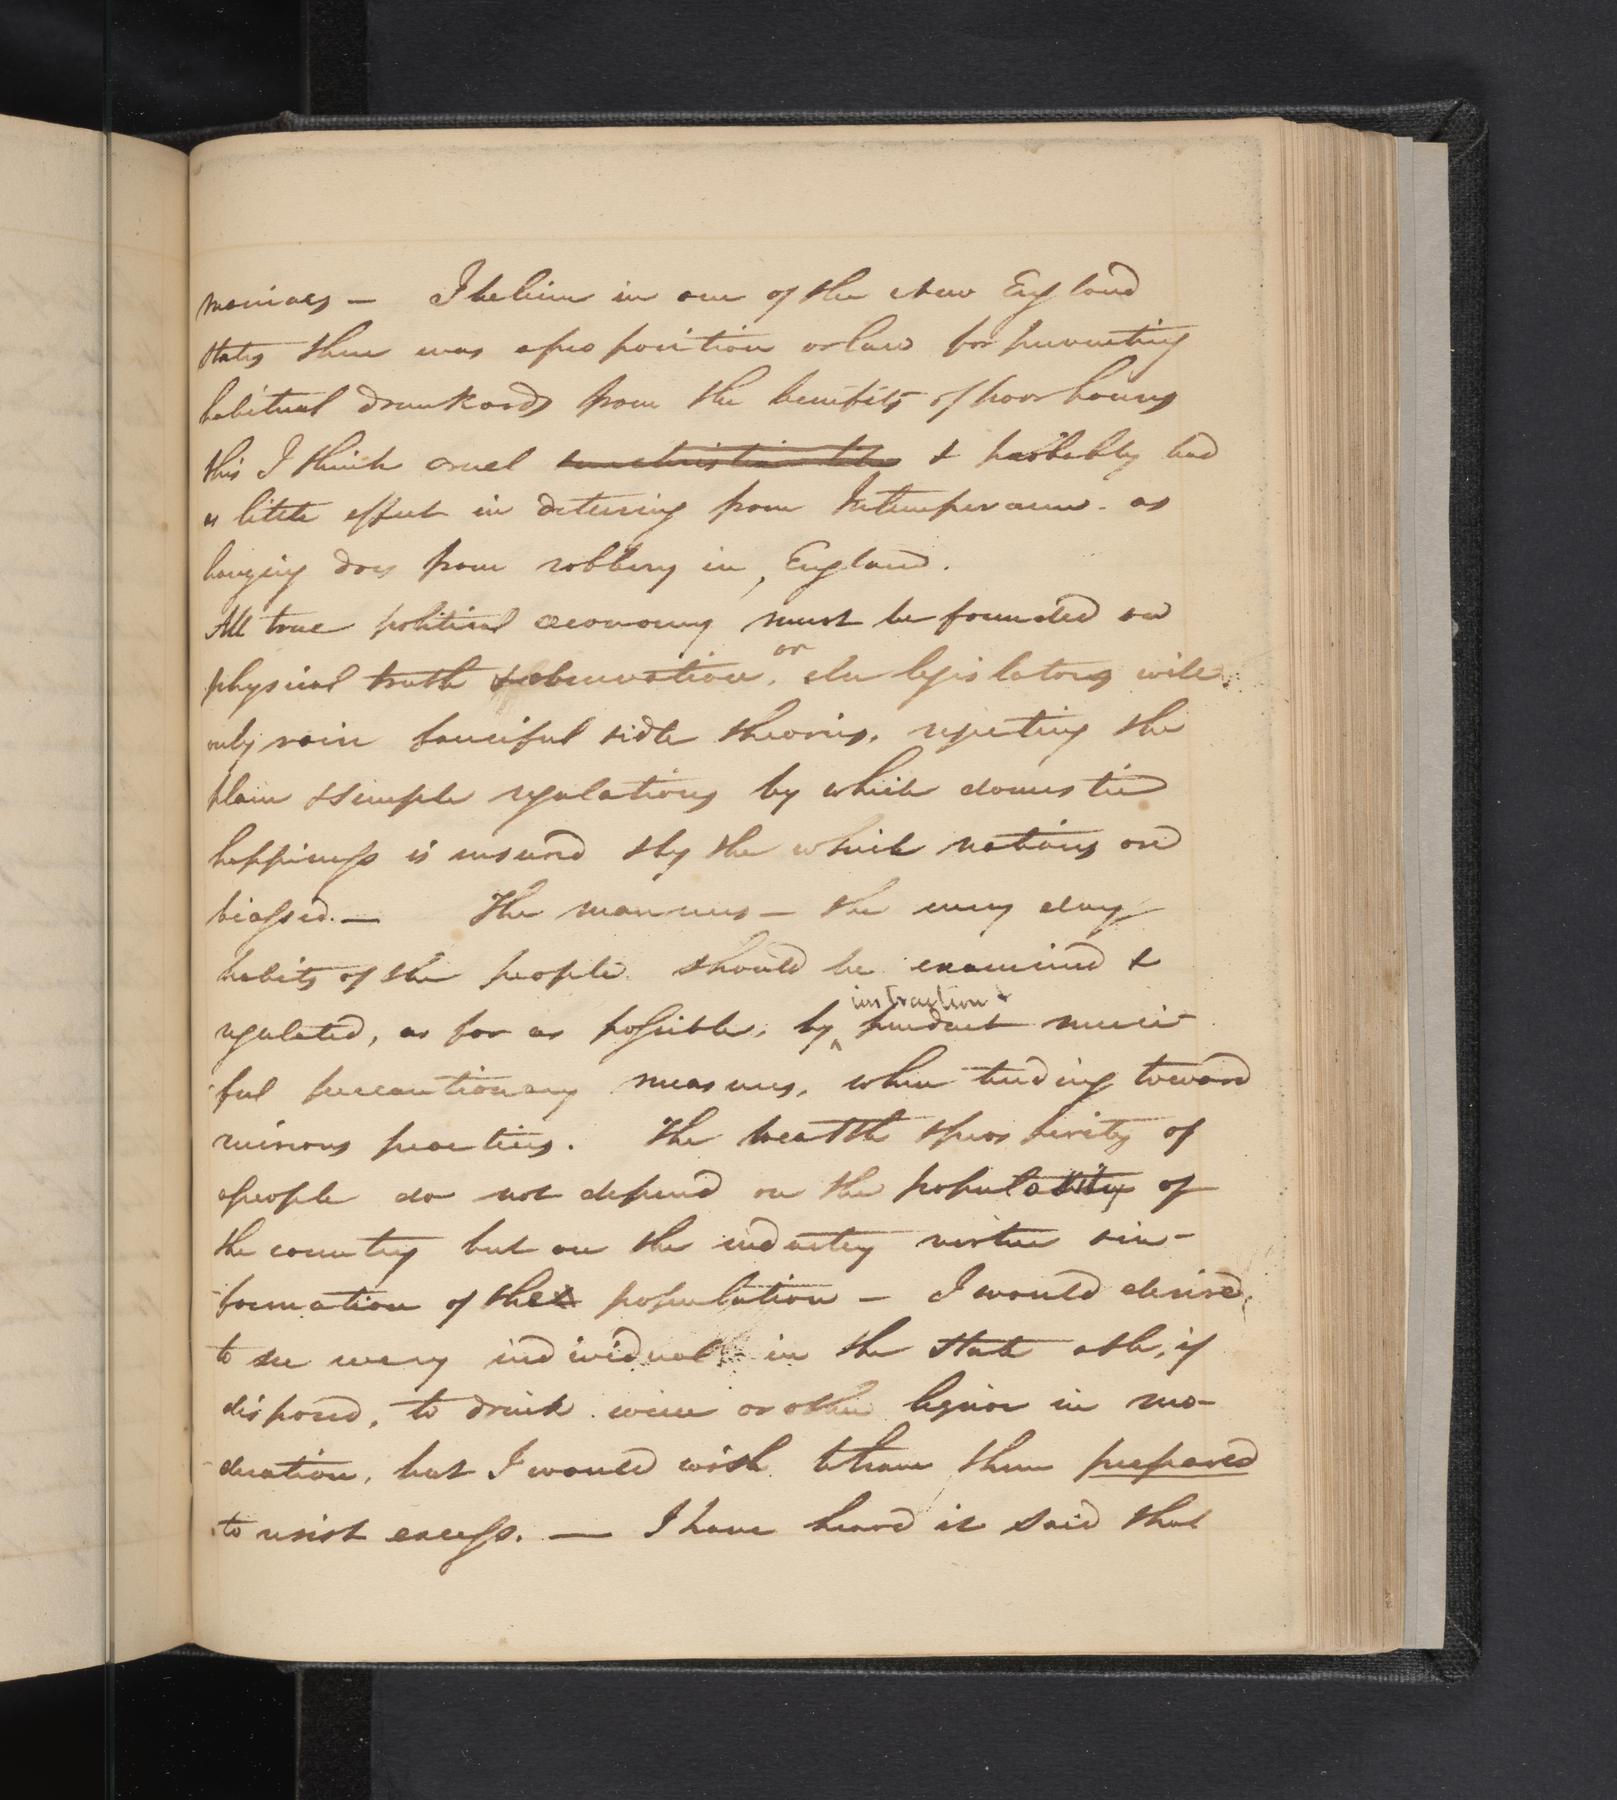 maniacs — I believe in one of the New England
States there was a proposition or law for preventing
habitual drunkards from the benefits of poor houses
this I think cruel & probably had
as little effect in detering from Intemperance. as
hanging does from robbery in, England.
All true political œconomy must be founded on
physical truth & observation, or else legislators will
only rain fanciful idle theories, rejecting the
plain & simple regulations by which domestic
happiness is insured & by the which nations are
blessed. — The manners — the every day
habits of the people should be examined &
regulated, as far as possible, by instruction & prudent merci-
ful precautionary measures, when tending toward
ruinous practices. The wealth & prosperity of
a people do not depend on the of
the country but on the industry virtue & in-
formation of the population — I would desire,
to see every individual in the State able, if
disposed, to drink wine or other liquor in mo-
deration, but I would wish to have them prepared
to resist excess. — I have heard it said that